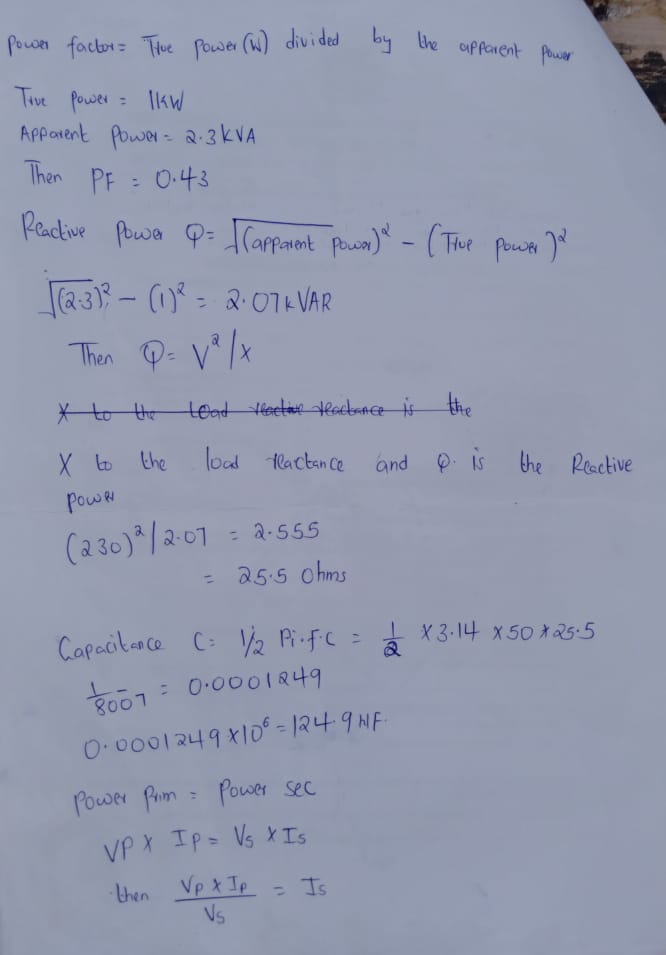 Power factor = True power (W) divided by the apparent power
True power = 1kW
Apparent Power = 2.3kVA
Then PF = 0.43
Reactive Power Q = √(apparent power)² - (True power)²
√(2.3)² - (1)² = 2.07kVAR
Then Q = V²/x
X to the load reactive reactance is the
X to the load reactance and Q. is the Reactive
power
(230)²/2.07 = 2.555
= 25.5 Ohms
Capacitance C = 1/2 Pi.f.C = 1/2 × 3.14 × 50 × 25.5
1/8007 = 0.0001249
0.0001249 × 10⁶ = 124.9 MF.
Power Prim = Power sec
VP × IP = Vs × Is
then Vp × Ip / Vs = Is